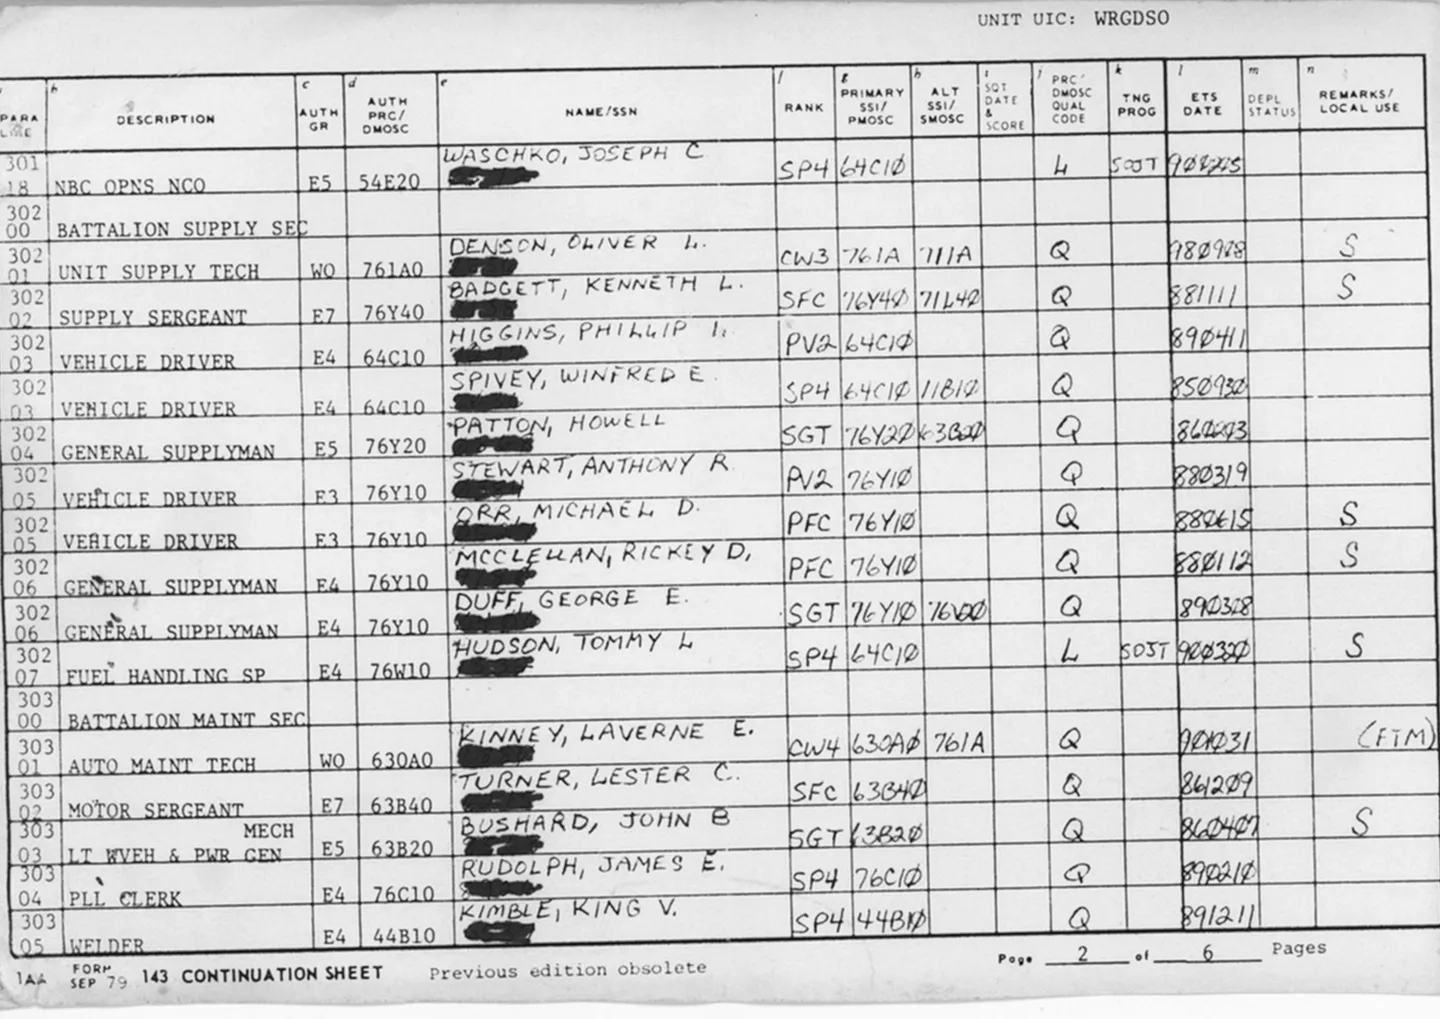 UNIT UIC: WRGDSO
b c d e f g h i j k l m n
PARA LINE DESCRIPTION AUTH GR AUTH PRC/ DMOSC NAME/SSN RANK PRIMARY SSI/ PMOSC ALT SSI/ SMOSC SQT DATE & SCORE PRC/ DMOSC QUAL CODE TNG PROG ETS DATE DEPL STATUS REMARKS/ LOCAL USE
301 18 NBC OPNS NCO E5 54E20 WASCHKO, JOSEPH C SP4 64C10 L SOJT
302 00 BATTALION SUPPLY SEC
302 01 UNIT SUPPLY TECH WO 761A0 DENSON, OLIVER L. CW3 761A 711A Q S
302 02 SUPPLY SERGEANT E7 76Y40 BADGETT, KENNETH L. SFC 76Y40 71L40 Q 881111 S
302 03 VEHICLE DRIVER E4 64C10 HIGGINS, PHILLIP PV2 64C10 Q 890411
302 03 VEHICLE DRIVER E4 64C10 SPIVEY, WINFRED E. SP4 64C10 11B10 Q 850930
302 04 GENERAL SUPPLYMAN E5 76Y20 PATTON, HOWELL SGT 76Y20 63B20 Q 860203
302 05 VEHICLE DRIVER E3 76Y10 STEWART, ANTHONY R. PV2 76Y10 Q 880319
302 05 VEHICLE DRIVER E3 76Y10 ORR, MICHAEL D. PFC 76Y10 Q 880615 S
302 06 GENERAL SUPPLYMAN E4 76Y10 MCCLELLAN, RICKEY D, PFC 76Y10 Q 880112 S
302 06 GENERAL SUPPLYMAN E4 76Y10 DUFF, GEORGE E. SGT 76Y10 Q 890308
302 07 FUEL HANDLING SP E4 76W10 HUDSON, TOMMY L SP4 64C10 L SOJT 900320 S
303 00 BATTALION MAINT SEC
303 01 AUTO MAINT TECH WO 630A0 KINNEY, LAVERNE E. CW4 630A0 761A Q 901031 (FTM)
303 02 MOTOR SERGEANT E7 63B40 TURNER, LESTER C. SFC 63B40 Q 861209
303 03 MECH LT WVEH & PWR GEN E5 63B20 BUSHARD, JOHN B SGT 63B20 Q 860407 S
303 04 PLL CLERK E4 76C10 RUDOLPH, JAMES E. SP4 76C10 Q 890210
303 05 WELDER E4 44B10 KIMBLE, KING V. SP4 44B10 Q 891211
1AA FORM SEP 79 143 CONTINUATION SHEET Previous edition obsolete Page 2 of 6 Pages